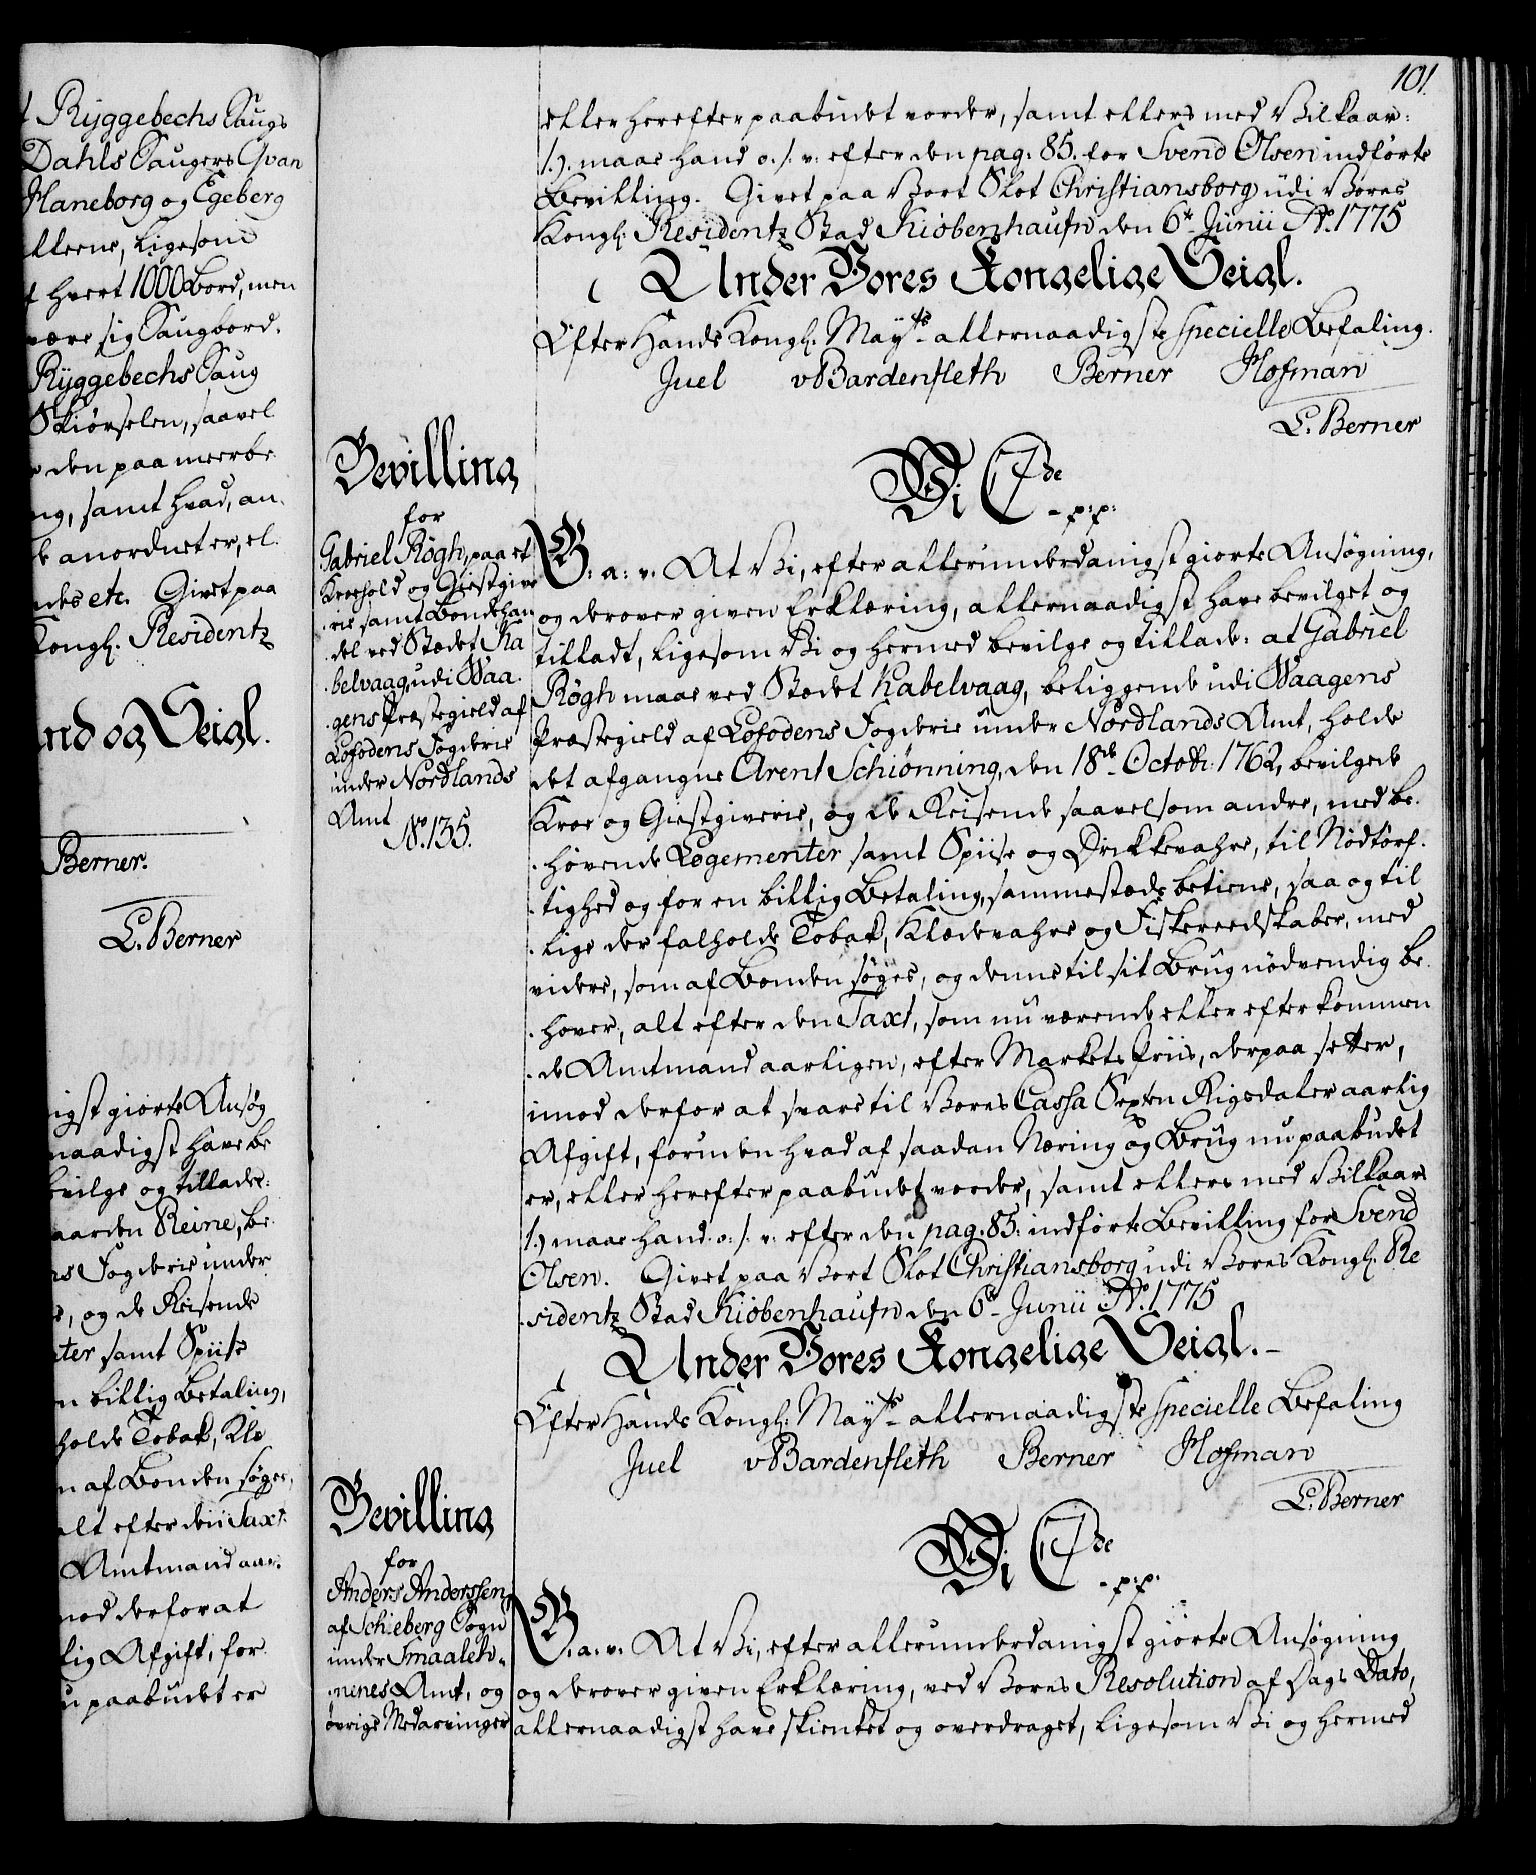 t Ryggebechs Saugs
Dahls Saugers Qvan
Haneborg og Egeberg
llerne, ligesom
f hvert 1000 Bord, men
være sig Saugbord.
Ryggebechs Saug
Skiørselen, saavel
den paa meerbe
ng, samt hvad, an-
anordnet er, el-
ndes etc. Givet paa
Kongl. Residentz
and og Seigl.
Berner.
L. Berner
igst giorte Ansøg
naadigst have be
evilge og tillade:
aarden Reine, be
ns Fogderie under
e, og de Reisende
ter samt Spiise
n billig Betaling,
holde Tobak, Klæ
n af Bonden søges,
alt efter den Taxt,
Amtmand aar-
mod derfor at
lig Afgift, for
u paabudet er
101.
eller herefter paabudet vorder, samt ellers med Vilkaar:
/:) maae hand o: /: v: efter den pag: 85. for Svend Olsen indførte
Bevilling. Givet paa Vort Slot Christiansborg udi Vores
Kongl: Residentz Stad Kiøbenhaufn den 6te Junii Ao. 1775
Under Vores Kongelige Seigl.
Efter Hands Kongl. Mayts allernaadigste specielle Befaling.
Juel vBardenfleth Berner Hofman
L. Berner
Bevilling
for
Gabriel Røgh, paa et
Kroehold og Giestgive
rie samt Bondehan
del ved Stædet Ka
belvaag, udi Waa-
gens Præstegield af
Lofodens Fogderie
under Nordlands
Amt
No. 135.
Vi C 7de
- p: p:
G: a: v: At Vi, efter allerunderdanigst giorte Ansøgning,
og derover given Erklæring, allernaadigst have bevilget og
tilladt, ligesom Vi og hermed bevilge og tillade: at Gabriel
Røgh maae ved Stædet Kabelvaag, beliggende udi Waagens
Præstegield af Lofodens Fogderie under Nordlands Amt, holde
det afgangne Arent Schiønning, den 18de Octobr: 1762, bevilgede
Kroe og Giestgiverie, og de Reisende saavelsom andre, med be-
høvende Logementer samt Spiise og Drikkevahre, til Nødtørf-
tighed og for en billig Betaling, sammestæds betiene, saa og til
lige der falholde Tobak, Klædevahre og Fiskereedskaber, med
videre, som af Bonden søges, og denne til sit Brug nødvendig be-
høver, alt efter den Taxt, som nu værende eller efterkommen
de Amtmand aarligen, efter Markets Priis, derpaa sætter,
imod derfor at svare til Vores Cassa Sexten Rigsdaler aarlig
Afgift, foruden hvad af saadan Næring og Brug nu paabudet
er, eller herefter paabudet vorder, samt ellers med Vilkaar
/:) maae hand: o: /: v: efter den pag. 85: indførte Bevilling for Svend
Olsen. Givet paa Vort Slot Christiansborg udi Vores Kongl. Re
sidentz Stad Kiøbenhaufn den 6te Junii Ao. 1775
Under Vores Kongelige Seigl. -
Efter Hands Kongl: Mayts allernaadigste specielle Befaling
Juel vBardenfleth Berner Hofman
L. Berner
Bevilling
for
Anders Anderssen
af Schieberg Sogn
under Smaaleh-
nenes Amt, og
øvrige Medarvinger
Vi C 7de
- p: p:
G. a: v: At Vi, efter allerunderdanigst giorte Ansøgning
og derover given Erklæring, ved Vores Resolution af Dags Dato,
allernaadigst have skienket og overdraget, ligesom Vi og hermed